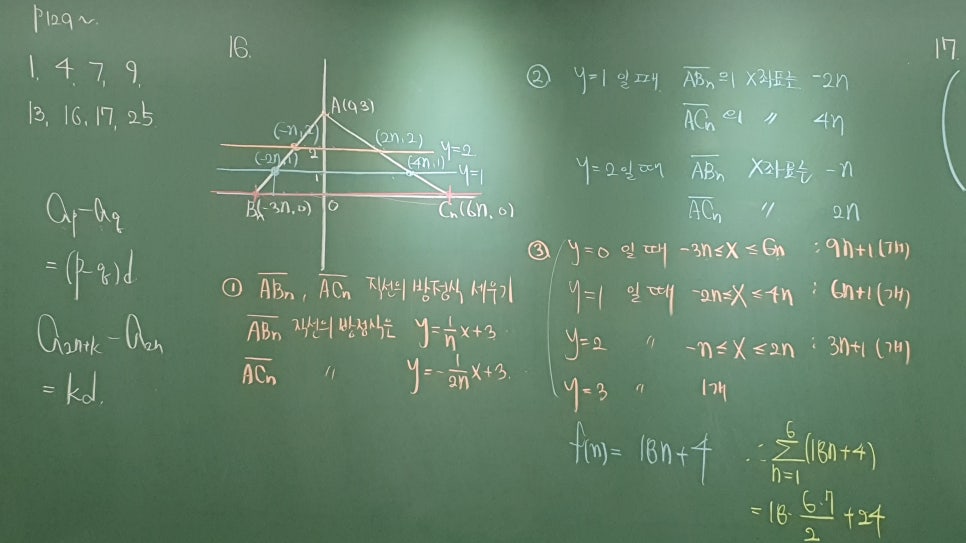 P129~.
1, 4, 7, 9,
13, 16, 17, 25
a_p-a_q
=(p-q)d
a_{2n+k}-a_{2n}
=kd.
16.
A(0,3)
(-n,2)
(2n,2)
y=2
2
(-2n,1)
(4n,1)
y=1
1
B_n(-3n,0)
0
C_n(6n,0)
① \overline{AB_n}, \overline{AC_n} 직선의 방정식 세우기
\overline{AB_n} 직선의 방정식은 y=\frac{1}{n}x+3.
\overline{AC_n} 〃 y=-\frac{1}{2n}x+3.
② y=1일 때 \overline{AB_n}의 x좌표는 -2n
\overline{AC_n}의 〃 4n
y=2일 때 \overline{AB_n} x좌표는 -n
\overline{AC_n} 〃 2n
③ y=0일 때 -3n≤x≤6n : 9n+1(개)
y=1일 때 -2n≤x≤4n : 6n+1(개)
y=2 〃 -n≤x≤2n : 3n+1(개)
y=3 〃 1개
f(n)=18n+4 ∴ \sum_{n=1}^{6}(18n+4)
=18·\frac{6·7}{2}+24
17.